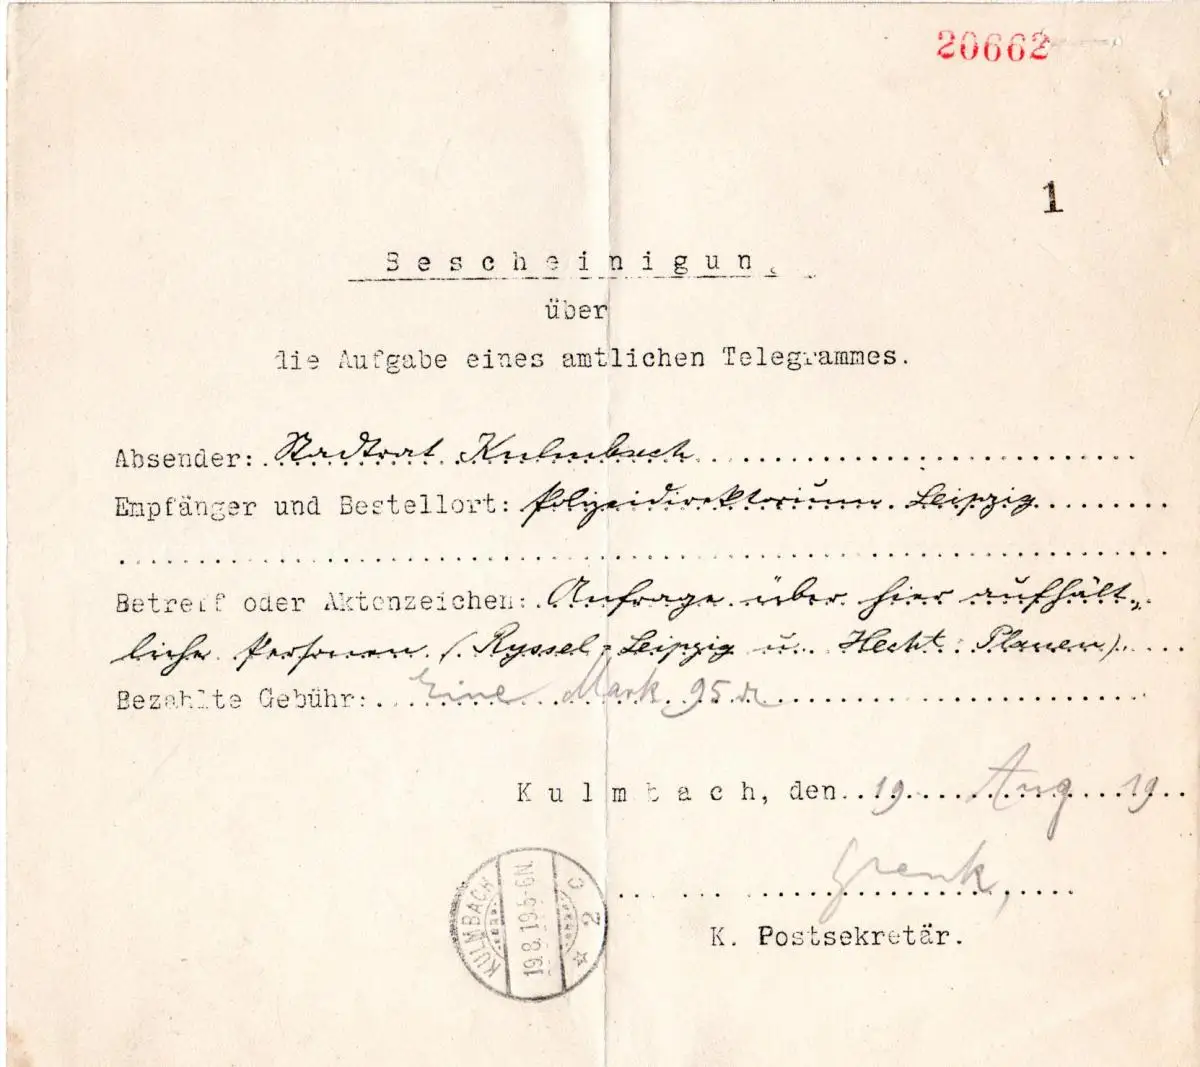 20662
1
Bescheinigung
über
die Aufgabe eines amtlichen Telegrammes.
Absender: Stadtrat Kulmbach
Empfänger und Bestellort: Polizeidirektorium Leipzig
Betreff oder Aktenzeichen: Anfrage über hier aufhält-
liche Personen (Ryssel-Leipzig u. Hecht-Plauen)
Bezahlte Gebühr: Eine Mark 95 d
Kulmbach, den 19 Aug 19
K. Postsekretär.
KULMBACH 2
19.8.19.5-6N.
c